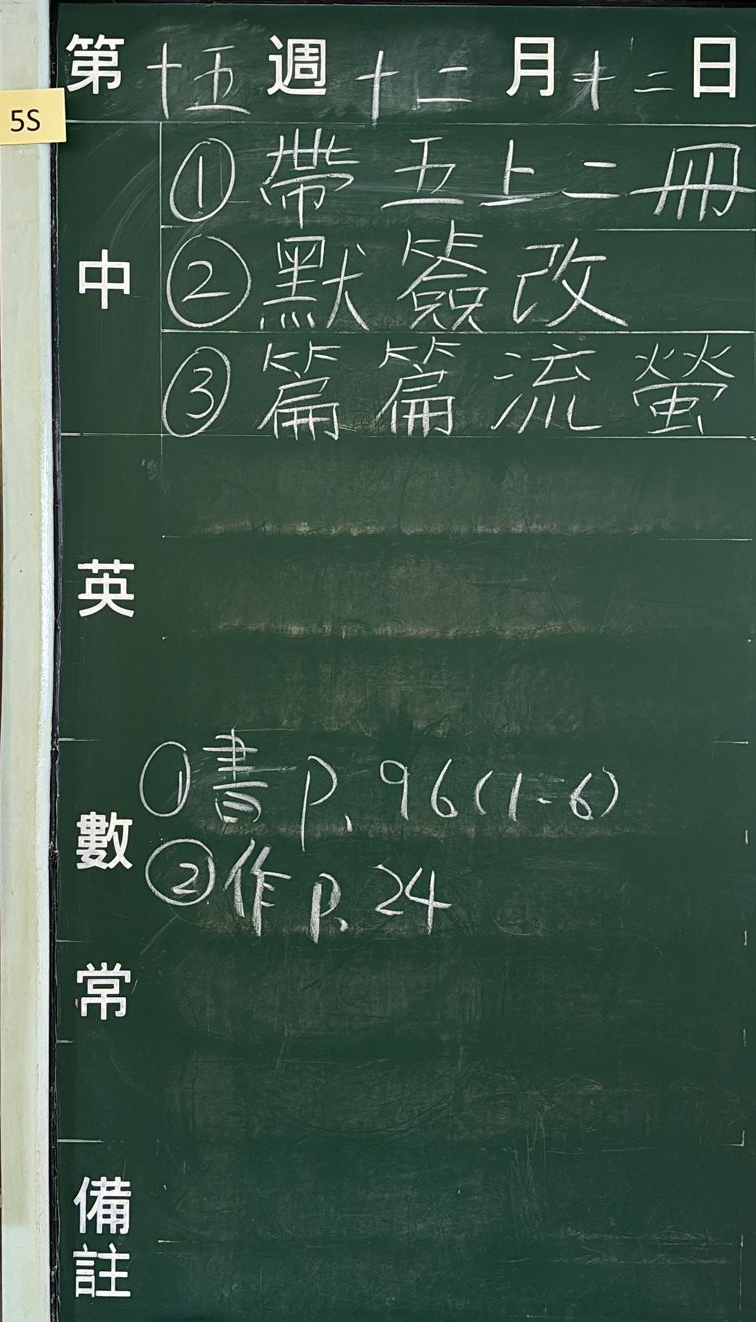 第十五週十二月十二日
5S
中
①帶五上二冊
②默簽改
③篇篇流螢
英
數
①書p.96(1-6)
②作p.24
常
備註